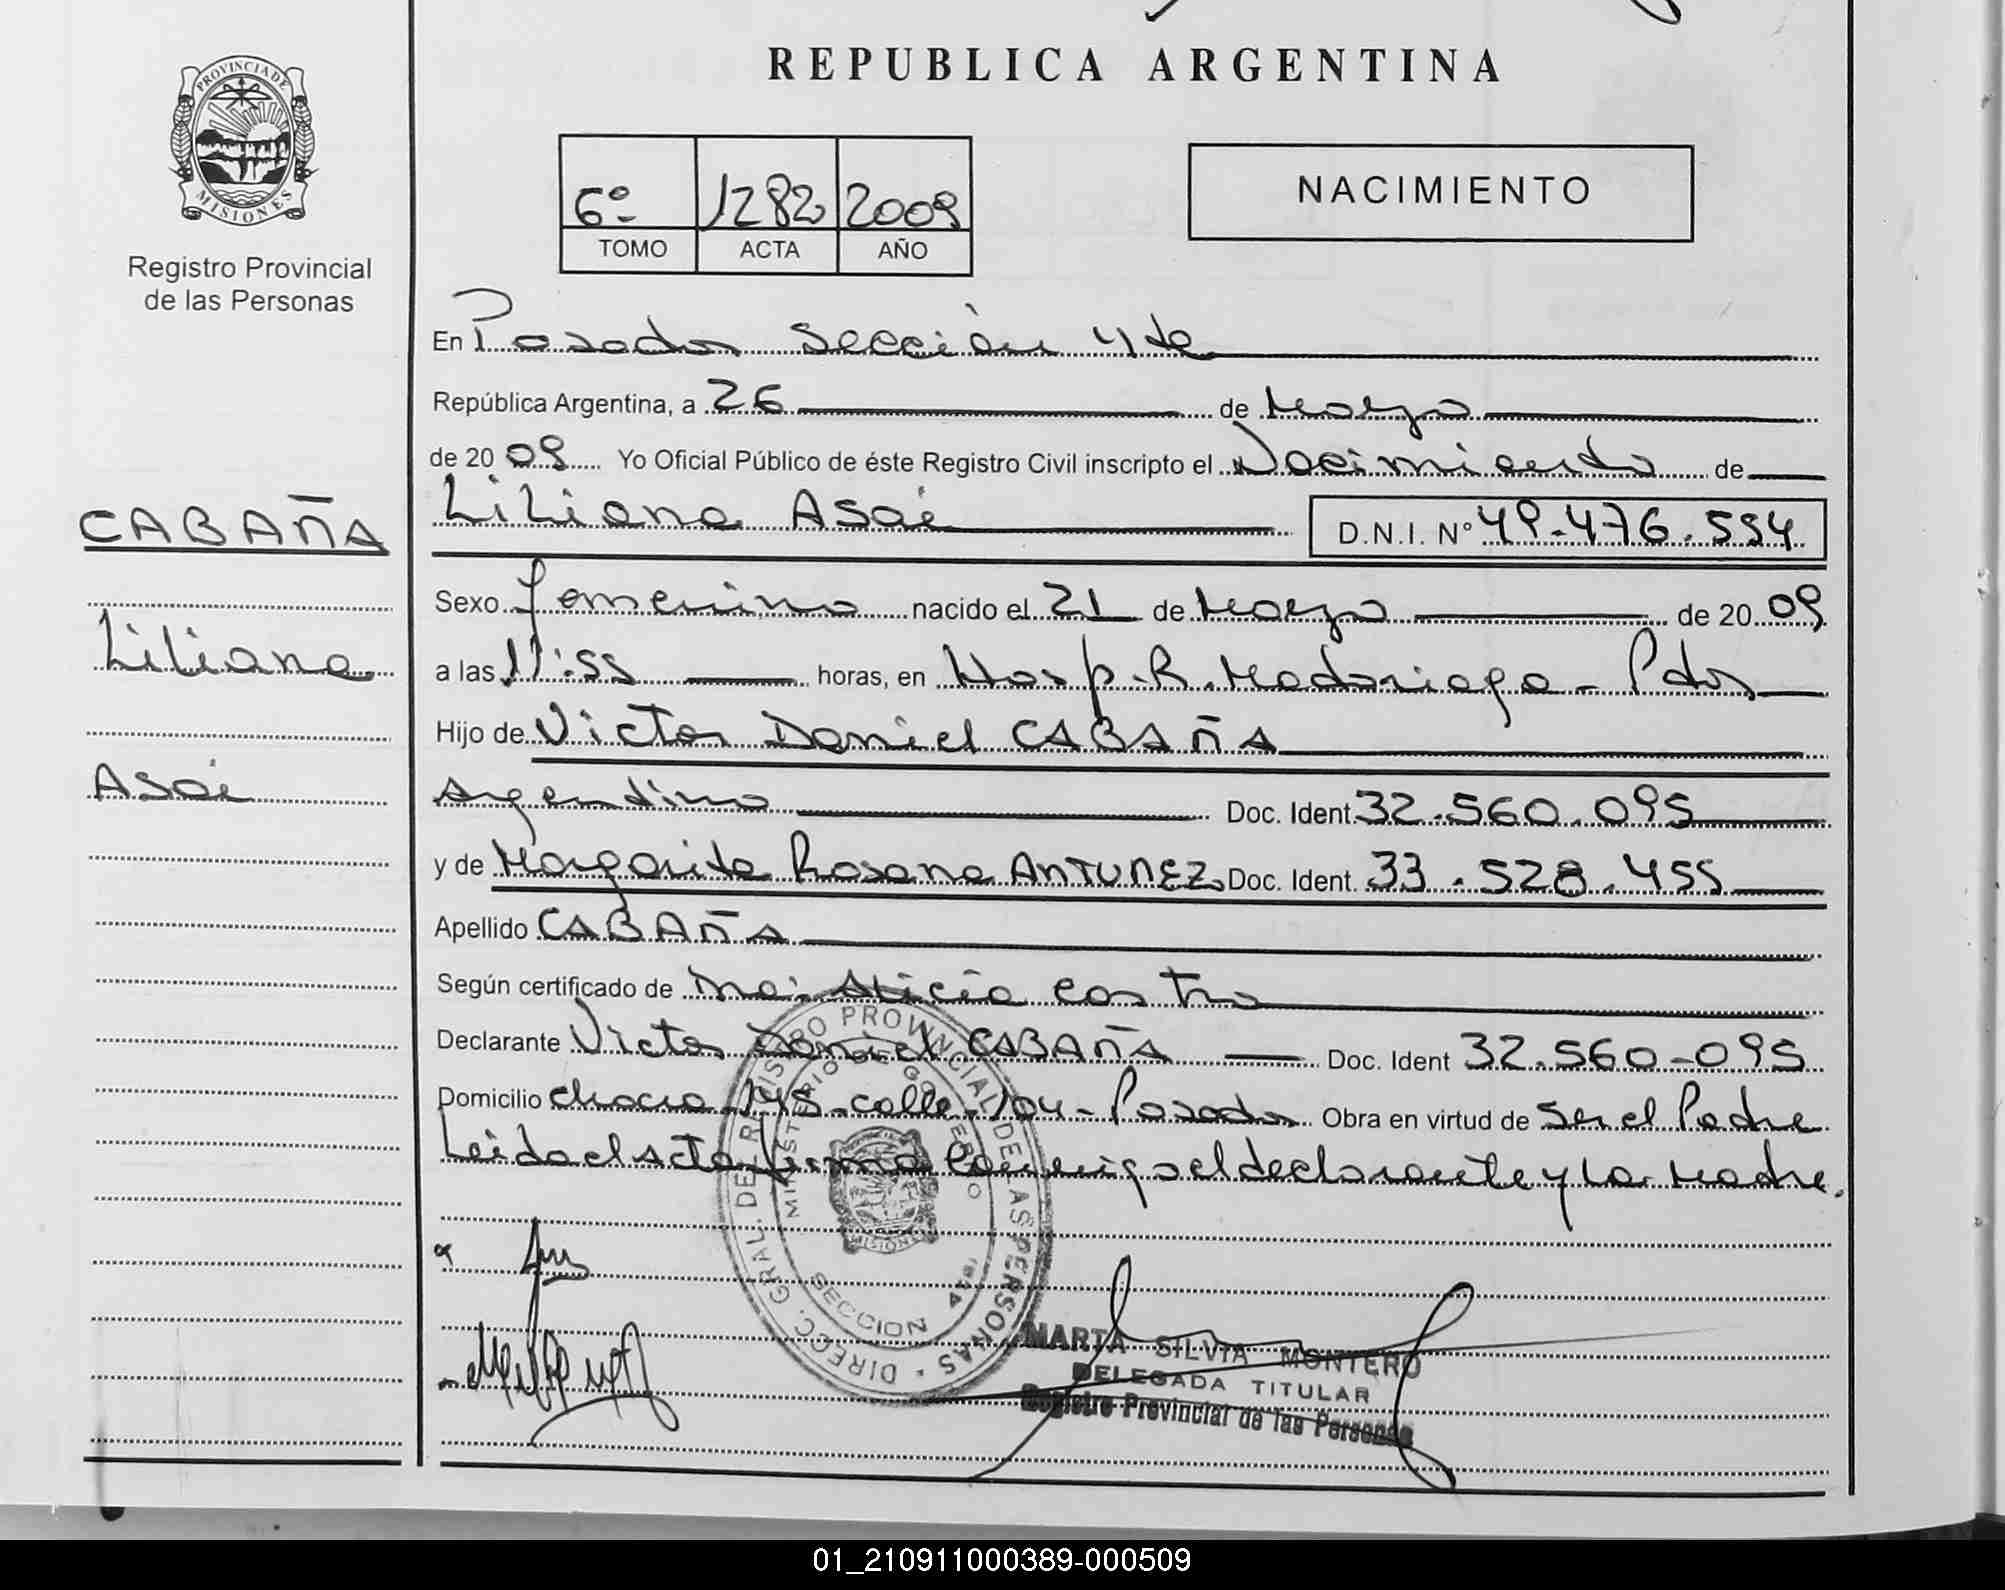 REPUBLICA ARGENTINA
PROVINCIA DE
MISIONES
Registro Provincial
de las Personas
6º 1282 2009
TOMO ACTA AÑO
NACIMIENTO
En Posadas Sección 4ta
República Argentina, a 26 de Marzo
de 2009 Yo Oficial Público de éste Registro Civil inscripto el Nacimiento de
Liliana Asaí D.N.I. Nº 49.476.554
CABAÑA
Liliana
Asaí
Sexo femenino nacido el 21 de Marzo de 2009
a las 11:55 horas, en Hosp. R. Madariaga - Pdas
Hijo de Victor Daniel CABAÑA
Argentino Doc. Ident. 32.560.095
y de Margarita Rosana ANTUNEZ Doc. Ident. 33.528.455
Apellido CABAÑA
Según certificado de Alicia Castro
Declarante Victor Daniel CABAÑA Doc. Ident 32.560-095
Domicilio chacra 145 - calle 104 - Posadas Obra en virtud de Ser el Padre
Leida el Acta firma Conmigo el declarante y la Madre.
DIRECC. GRAL. DE REGISTRO PROVINCIAL DE LAS PERSONAS
MINISTERIO DE GOBIERNO
MISIONES
SECCION 4ta
MARTA SILVIA MONTERO
DELEGADA TITULAR
Registro Provincial de las Personas
01_210911000389-000509